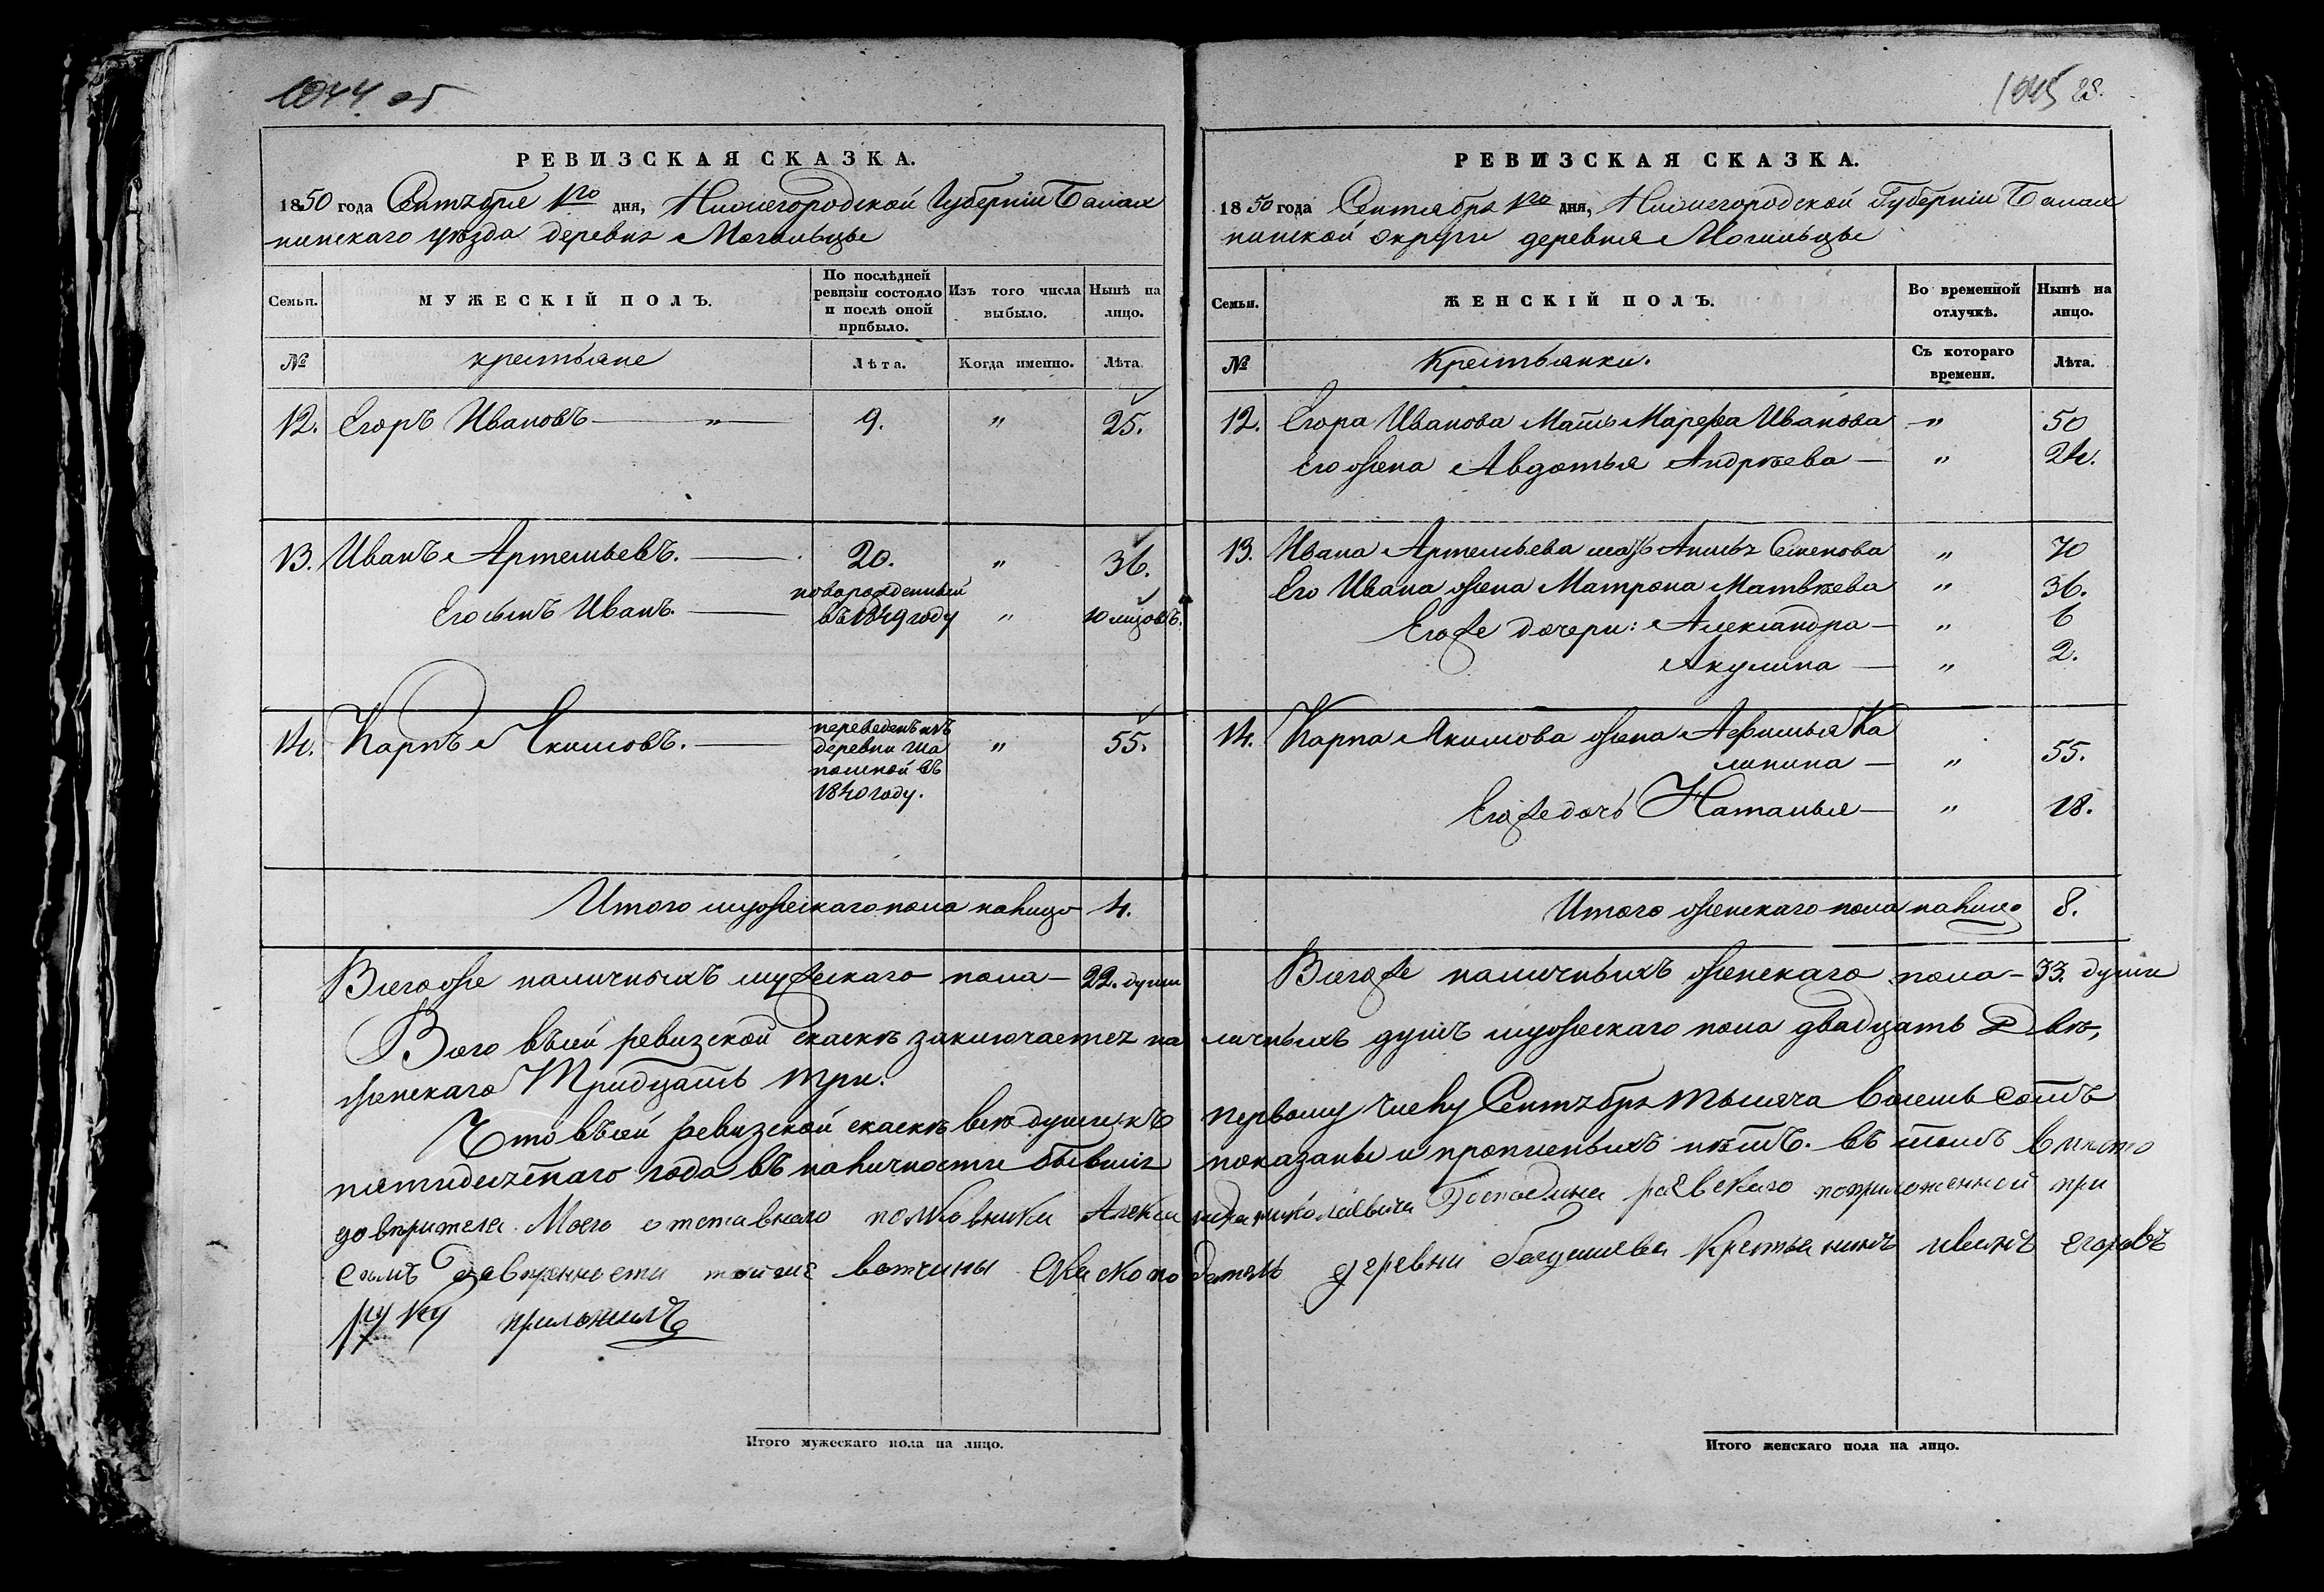 1044 об
РЕВИЗСКАЯ СКАЗКА.
1850 года Сентября 1го дня, Нижегородской Губерніи Балах
нинскаго уѣзда деревня Могильцы
Семьи. МУЖЕСКІЙ ПОЛЪ. По послѣдней ревизіи состояло и послѣ оной прибыло. Изъ того числа выбыло. Нынѣ на лицо.
№ крестьяне Лѣта. Когда именно. Лѣта.
12. Егоръ Ивановъ — " — 9. " 25.
13. Иванъ Артемьевъ. — 20. " 36.
Его сынъ Иванъ. — новорожденный въ 1849 году " 10 мцовъ.
14. Карпъ Якимовъ. — переведенъ изъ деревни Ша " 55.
ской въ
1840 году.
Итого мужескаго пола налицо 4.
Всегоже наличныхъ мужескаго пола — 22. души
1045 28.
РЕВИЗСКАЯ СКАЗКА.
1850 года Сентября 1го дня, Нижегородской Губерніи Балах
нинской округи деревня Могильцы
Семьи. ЖЕНСКІЙ ПОЛЪ. Во временной отлучкѣ. Нынѣ на лицо.
№ Крестьянки. Съ котораго времени. Лѣта.
12. Егора Иванова Мать Марефа Иванова " 50
Его жена Авдотья Андрѣева — " 24.
13. Ивана Артемьева мать Анисья Семенова " 70
Его Ивана жена Матрона Матвѣева " 36.
Егоже дочери: Александра — " 6
Акулина — " 2.
14. Карпа Якимова жена Афимья Ка
линина — " 55.
Егоже дочь Наталья — " 18.
Итого женскаго пола налицо 8.
Всегоже наличныхъ женскаго пола — 33. души
Всего въсей ревизской скаскѣ заключается наличныхъ душъ мужескаго пола двадцать Двѣ,
женскаго Тридцать три.
Что въсей ревизской скаскѣ всѣ души къ первому числу Сентября тысяча восемь сотъ
пятидесятаго года въ наличности бывшія показаны и прописныхъ нѣтъ. въ томъ вместо
доверителя Моего отставного полковника Александра николаевича Господина раевскаго поприложенной при
семъ доверенности тойже вотчины скаскоподатель деревни крестьянинъ иванъ егоровъ
руку приложилъ
Итого мужескаго пола на лицо.
Итого женскаго пола на лицо.